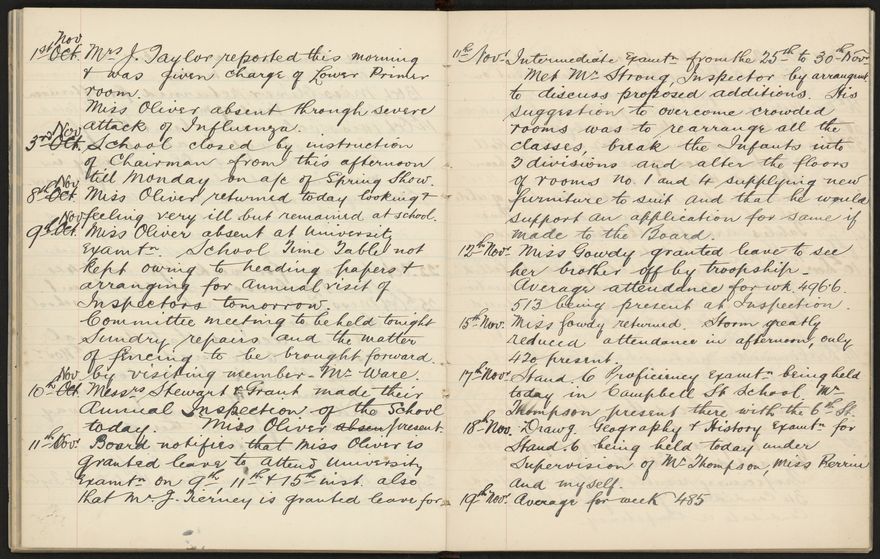 Nov
1st Oct. Mrs J. Taylor reported this morning
& was given charge of Lower Primer
room.
Miss Oliver absent through severe
attack of Influenza.
Nov
3rd Oct. School closed by instruction
of Chairman from this afternoon
till Monday on a/c of Spring Show.
Nov
8th Oct. Miss Oliver returned today looking &
feeling very ill but remained at school.
Nov
9th Oct. Miss Oliver absent at University
Examtn. School Time Table not
kept owing to heading papers &
arranging for annual visit of
Inspectors tomorrow.
Committee meeting to be held tonight
Sundry repairs and the matter
of fencing to be brought forward.
by visiting member - Mr Ware.
Nov
10th Oct. Messrs Stewart & Grant made their
Annual Inspection of the School
today. Miss Oliver absen/present.
11th Novr. Board notifies that Miss Oliver is
granted leave to attend University
Examtn on 9th, 11th & 15th inst. also
that Mr J. Tierney is granted leave for
11th Novr Intermediate Examtn from the 25th to 30th Novr.
Met Mr Strong, Inspector by arrangmt
to discuss proposed additions. His
suggestion to overcome crowded
rooms was to rearrange all the
classes, break the Infants into
3 divisions and alter the floors
of rooms No. 1 and 4 supplying new
furniture to suit and that he would
support an application for same if
made to the Board.
12th Novr. Miss Gowdy granted leave to see
her brother off by troopship.
Average attendance for wk 496.6.
513 being present at Inspection
15th Nov. Miss Gowdy returned. Storm greatly
reduced attendance in afternoon, only
420 present.
17th Novr. Stand. 6 Proficiency Examtn being held
today in Campbell St School. Mr
Thompson present there with the 6th St.
18th Nov. Drawg Geography & History Examtn for
Stand. 6 being held today under
Supervision of Mr Thompson, Miss Perrin
and myself.
19th Novr. Average for week 485